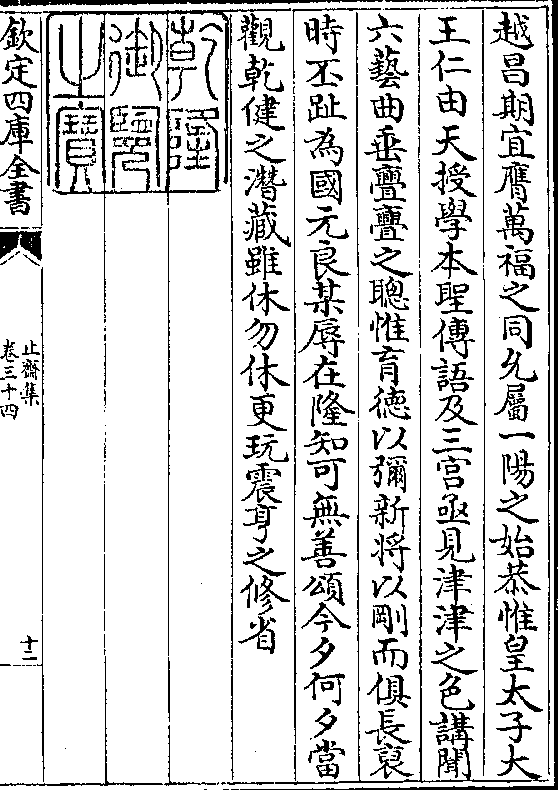 越昌期宜膺萬福之同允屬一陽之始恭惟皇太子大
王仁由天授學本聖傳語及三宫亟見津津之色講聞
六藝曲垂亹亹之聰惟育德以彌新将以剛而俱長裒
時丕趾為國元良某辱在隆知可無善頌今夕何夕當
觀乾健之潛藏雖休勿休更玩震身之修省
乾隆
御覽
之寶
欽定四庫全書
止齋集
卷三十四
十二